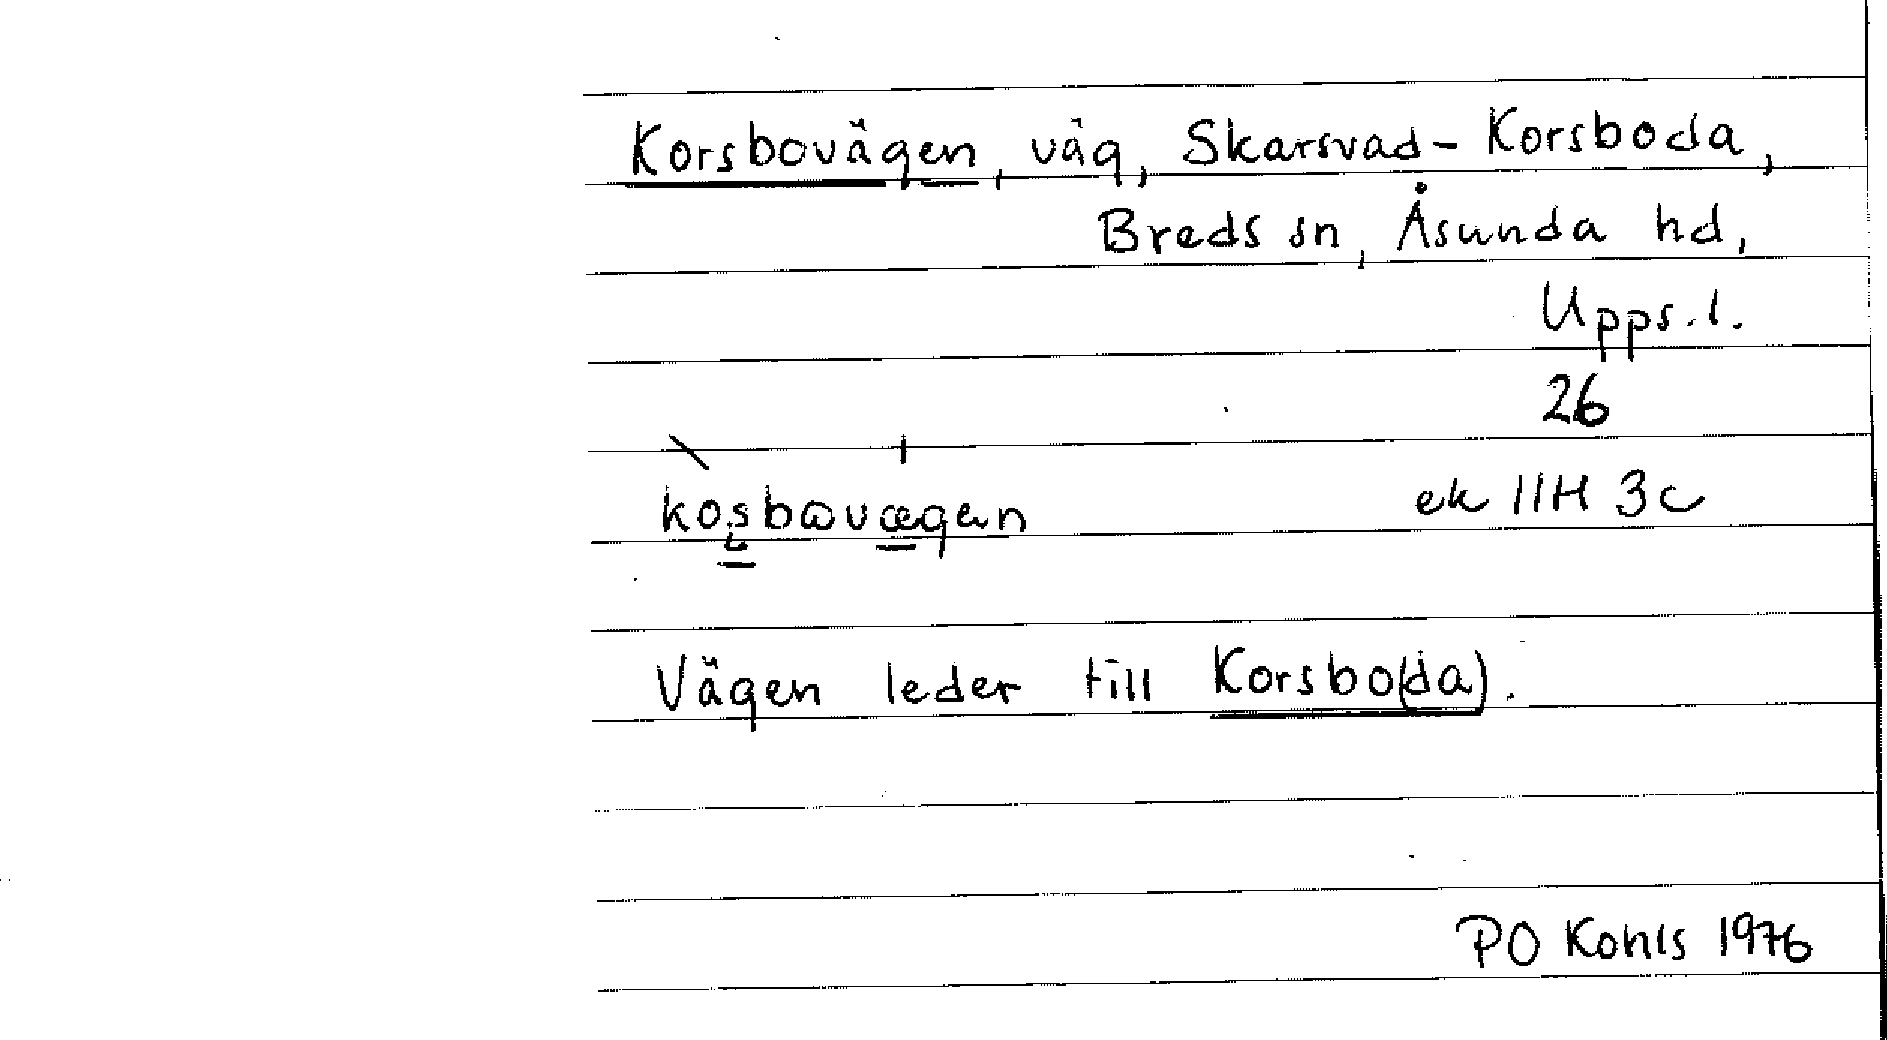 Korsbovägen, väg, Skarsvad-Korsboda,
Breds sn, Åsunda hd,
Upps. l.
26
kosbωvægən ek 11H 3c
Vägen leder till Korsbo(da).
PO Kohls 1976